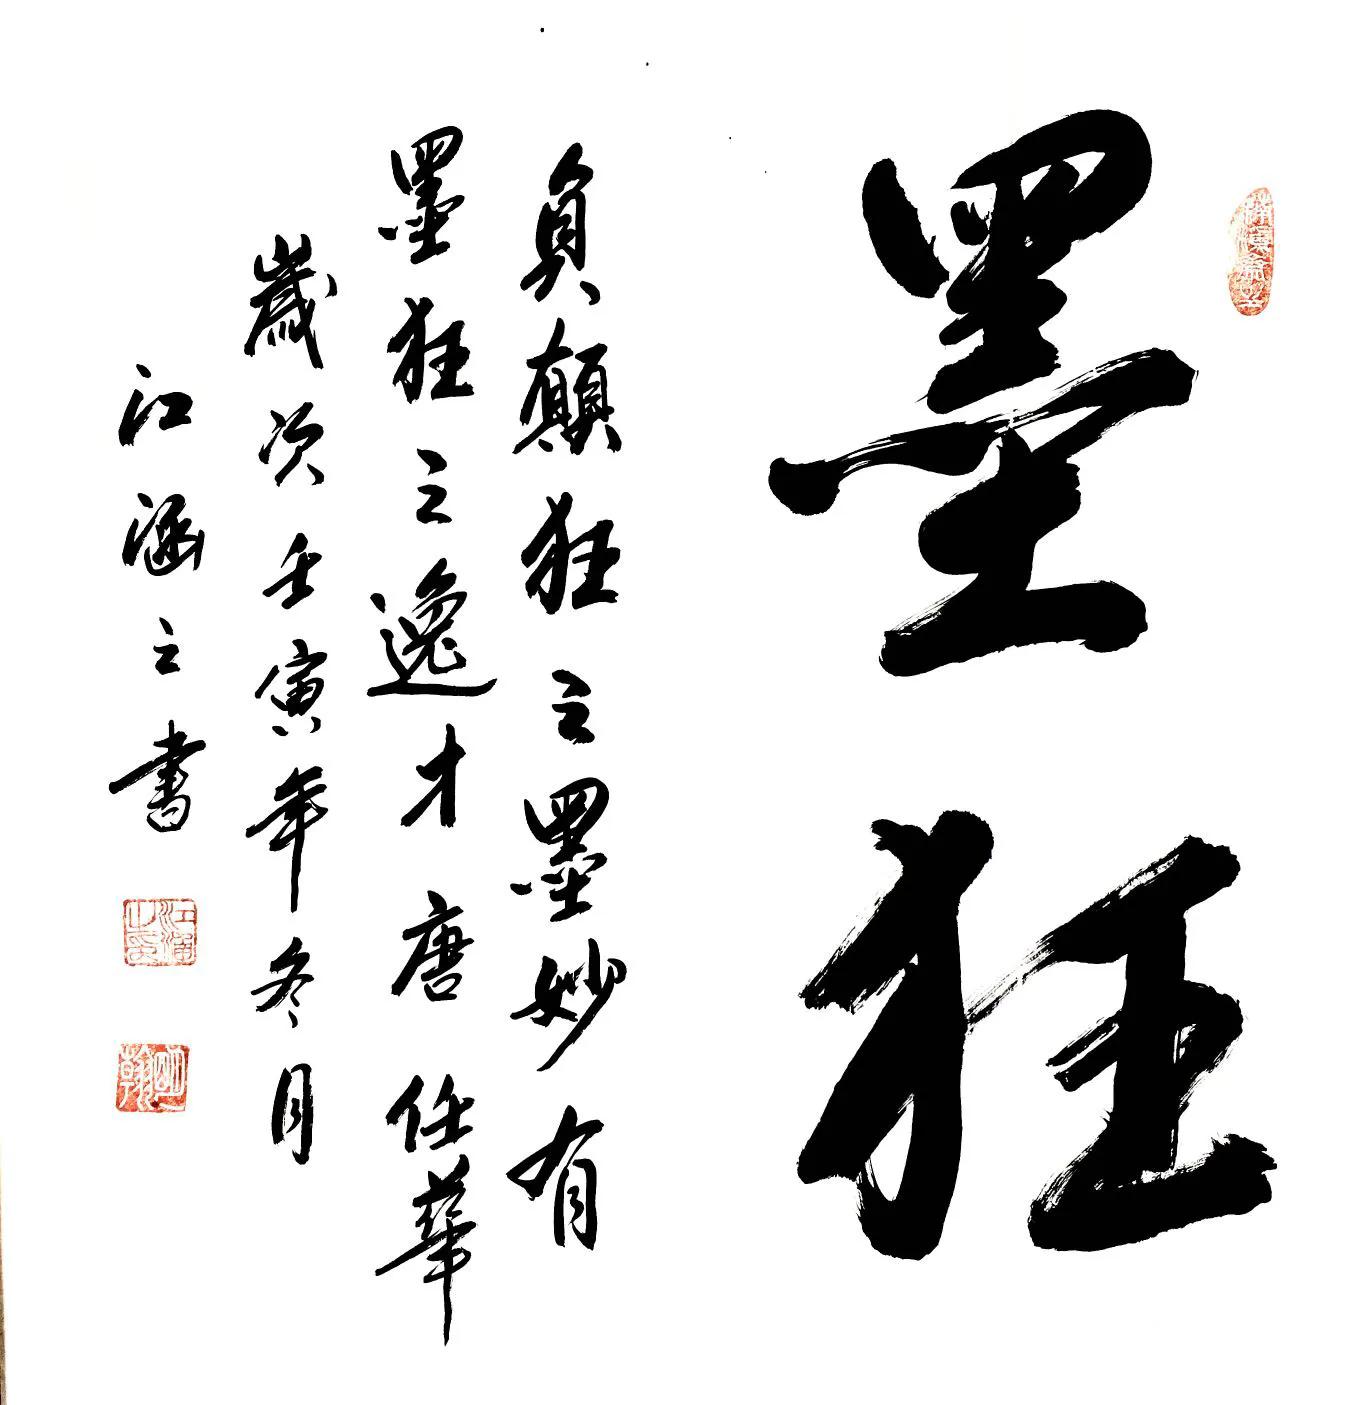 墨狂
負顛狂之墨妙有
墨狂之逸才唐任華
歲次壬寅年冬月
江涵之書